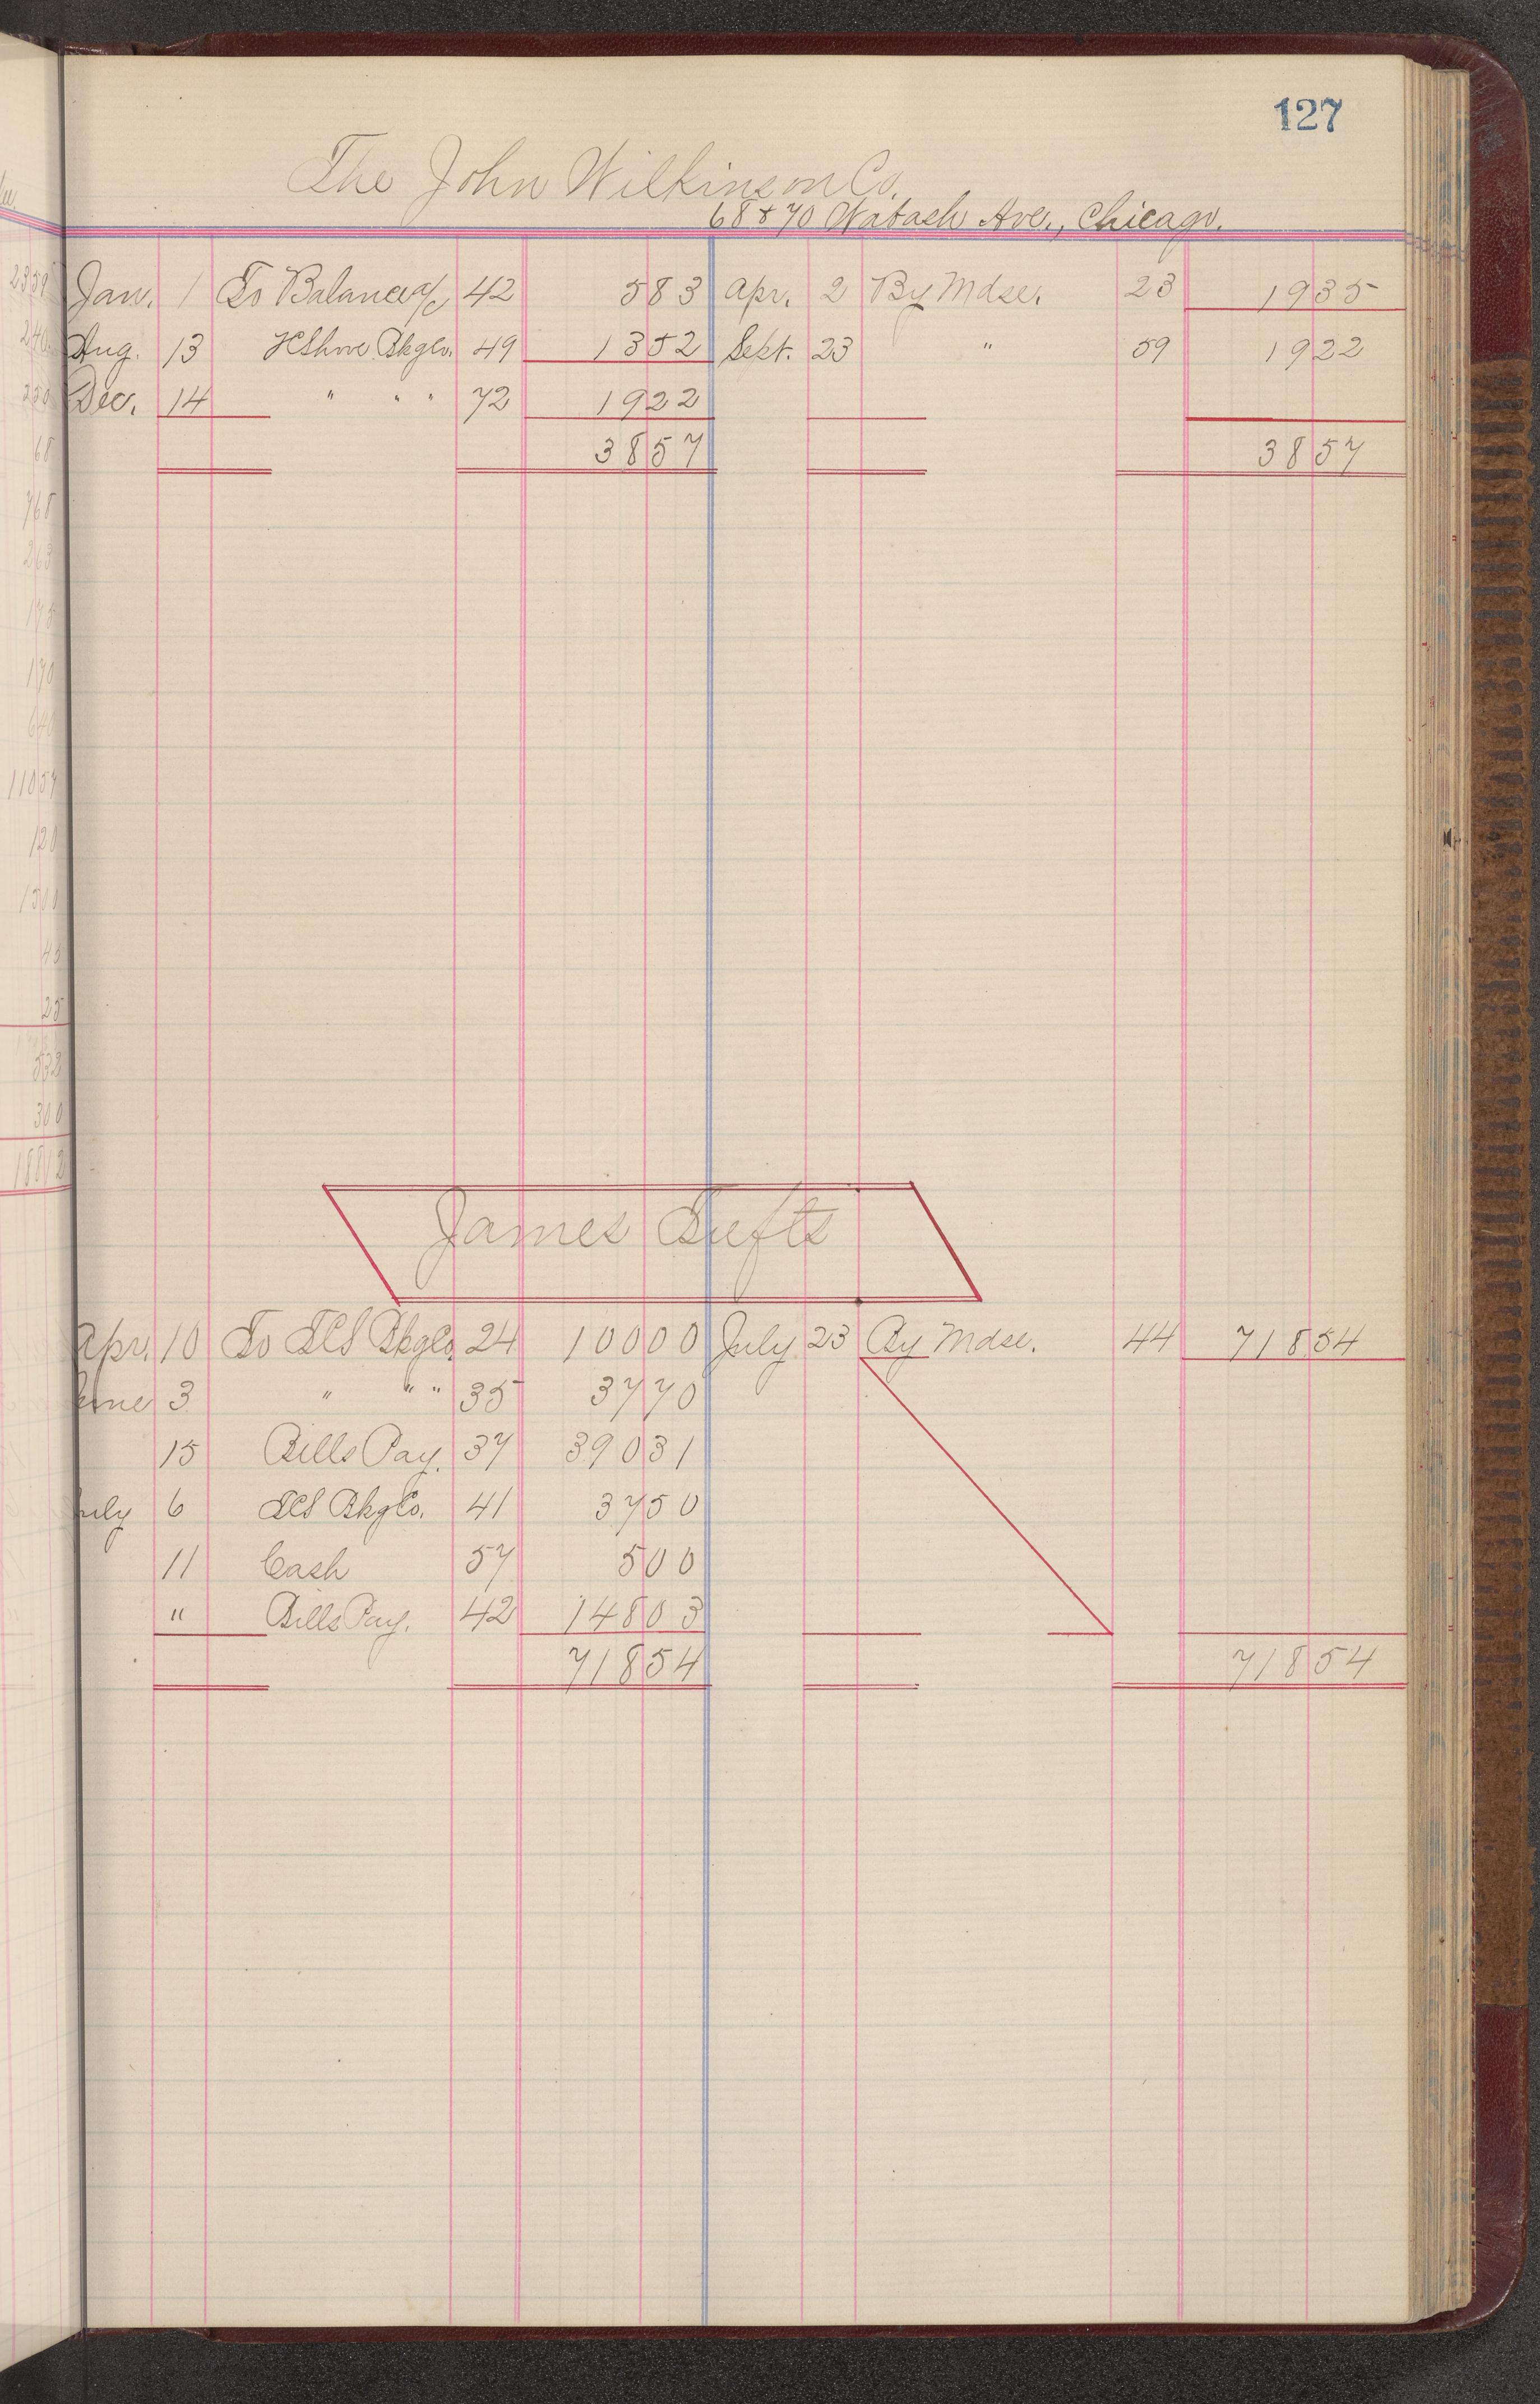 127
The John Wilkinson Co.
68 & 70 Wabash Ave., Chicago.
Jan. 1 To Balance a/c 42 583 Apr. 2 By Mdse. 23 1935
Aug. 13 Bkg Co. 49 1352 Sept. 23 " 59 1922
Dec. 14 " " " 72 1922
3857 3857
James Tufts
Apr. 10 To Bkg Co. 24 10000 July 23 By Mdse. 44 71854
June 3 " " " 35 3770
15 Bills Pay. 37 39031
July 6 Bkg Co. 41 3750
11 Cash 57 500
" Bills Pay. 42 14803
71854 71854
2359
240
250
68
768
263
175
170
640
11057
120
1500
45
25
532
300